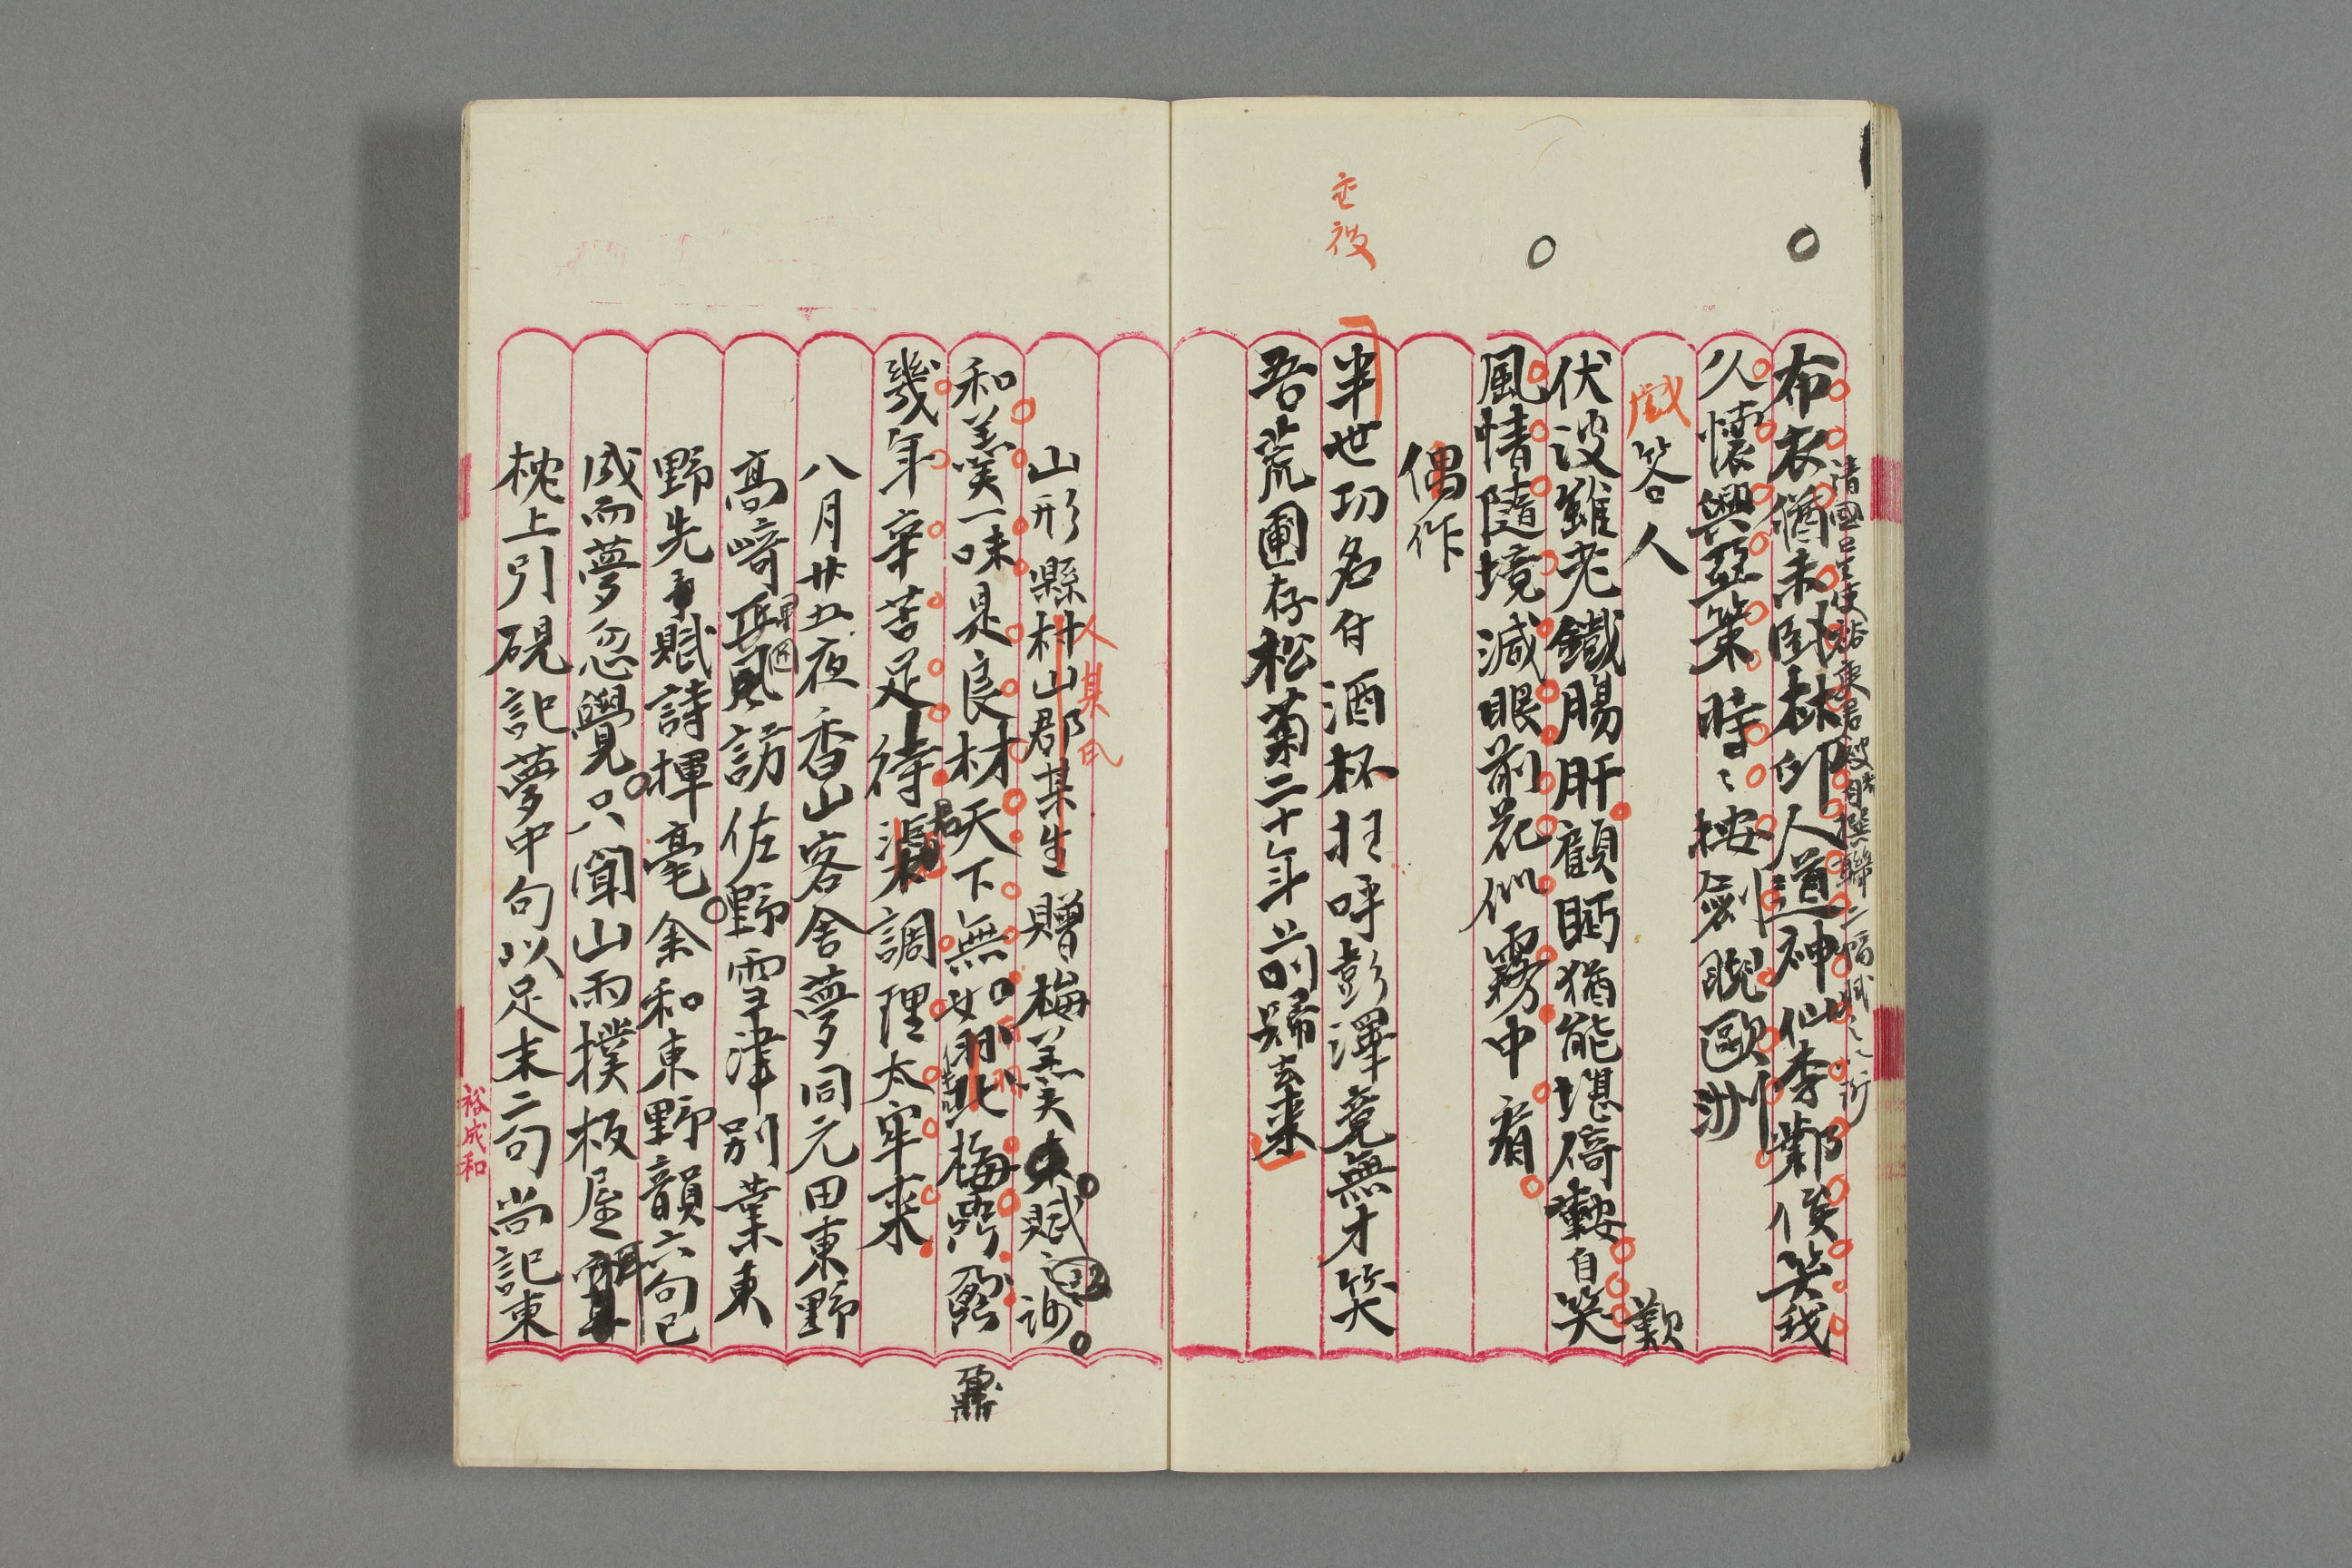 清國公使裕庚君被贈撰聯二幅賦之以謝
布衣猶未臥林邱人道神仙李鄴侯笑我
久懷興亞策時〻按劍睨歐洲
戲答人
歎
伏波雖老鐵腸肝顧眄猶能堪倚鞍自笑
風情隨境減眼前花似霧中看
偶作
半世功名付酒杯狂呼彭澤竟無才笑
吾荒圃存松菊二十年前歸去来
山形縣村山郡某生贈梅羹賦之謝
人某氏
和羹一味是良材天下無如此梅
鼐
幾年辛苦足待君調理太牢来
八月廿五夜香山客舍夢同元田東野
高崎訪佐野雪津別業東
野先賦詩揮毫余和東野韻六句已
成而夢忽覺只聞山雨撲板屋
枕上引硯記夢中句以足末二句尚記東
裕成和